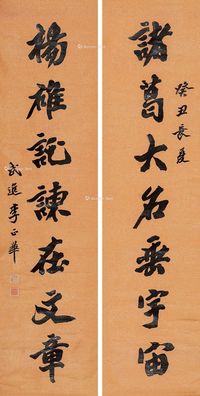 諸葛大名垂宇宙
癸丑長夏
楊雄託諫在文章
武進李正華